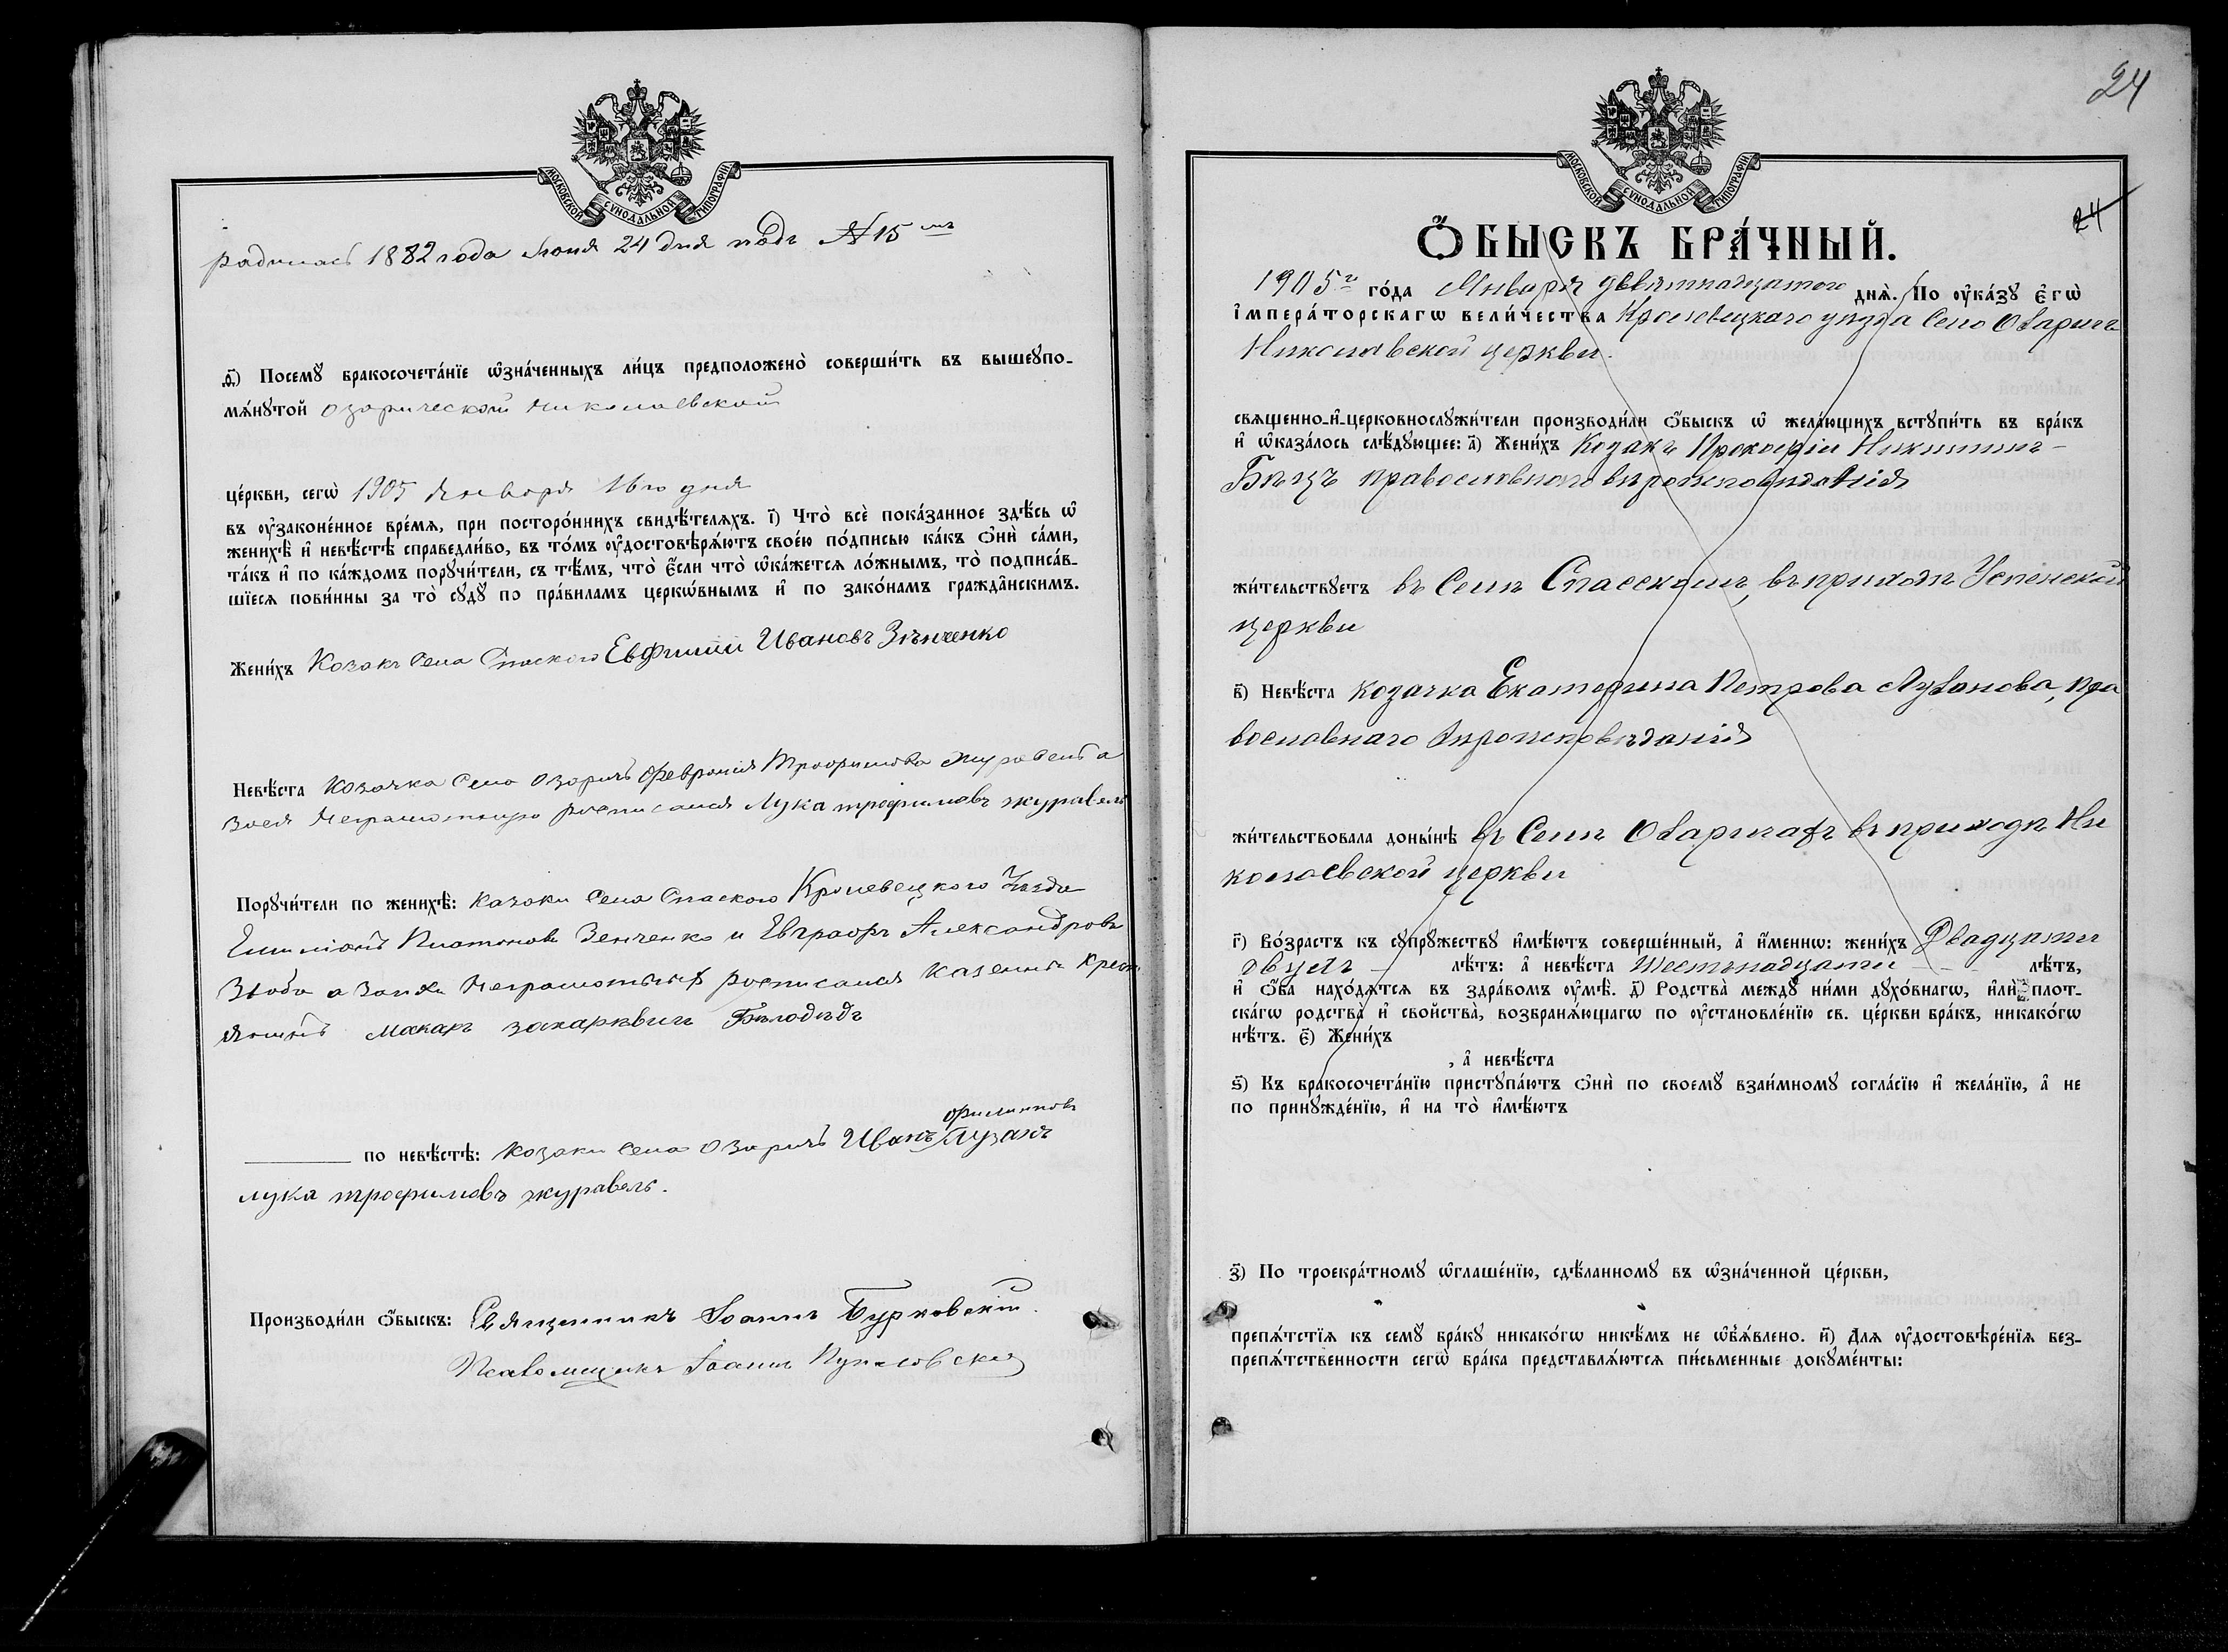 МОСКОВСКОЙ СУНОДАЛЬНОЙ ТИПОГРАФІИ.
родилась 1882 года Іюня 24 дня подъ № 15мъ
ѳ҃) Посемꙋ̀ бракосочета́нїе ѡ҆зна́ченныхъ ли́цъ предположено̀ соверши́ть въ вышеꙋпо-
мѧ́нꙋтой озарической николаевской
це́ркви, сегѡ̀ 1905 января 16го дня
въ ᲂу҆законе́нное вре́мѧ, при посторо́ннихъ свидѣ́телѧхъ. і҃) Что̀ всѐ пока́занное здѣ́сь ѡ҆
женихѣ̀ и҆ невѣ́стѣ справедли́во, въ то́мъ ᲂу҆достовѣрѧ́ютъ свое́ю по́дписью ка́къ ѻ҆нѝ са́ми,
та́къ и҆ по ка́ждомъ порꙋчи́тели, съ тѣ́мъ, что̀ є҆́сли что̀ ѡ҆ка́жетсѧ ло́жнымъ, то̀ подписа́в-
шїесѧ пови́нны за то̀ сꙋдꙋ̀ по пра́виламъ церкѡ́внымъ и҆ по зако́намъ гражда̑нскимъ.
Жени́хъ Козакъ села Спаского Евфимій Ивановъ Зѣнченко
Невѣ́ста Козачка села Озаричъ Феврония Трофимова журавель а
за нея неграмотную росписался Лука трофимовъ журавель
Порꙋчи́тели по женихѣ̀: казаки села Спаского Кролевецкого Уезда
Емилианъ Платоновъ Зенченко и Евграфъ Александровъ
Зюба а за них неграмотных росписался казенный крест
янинъ Макаръ захарьвич Бѣлодѣдъ
филиповъ
по невѣ́стѣ: козаки села Озаричъ Иванъ Лузанъ
лука трофимовъ журавель.
Производи́ли ѻ҆́быскъ: Священникъ Іоаннъ Бурковскій.
Псаломщикъ Іоаннъ
24
МОСКОВСКОЙ СУНОДАЛЬНОЙ ТИПОГРАФІИ.
24
Ѻ҆́БЫСКЪ БРА́ЧНЫЙ.
1905г го́да Января девятнадцатого днѧ̀. По ᲂу҆ка́зꙋ є҆гѡ̀
і҆мпера́торскагѡ вели́чества Кролевецкаго уѣзда Село Озаричъ
Николаевской церкви.
свѧщенно-и҆-церковнослꙋжи́тели производи́ли ѻ҆́быскъ ѡ҆ жела́ющихъ встꙋпи́ть въ бра́къ
и҆ ѡ҆каза́лось слѣ́дꙋющее: а҃) Жени́хъ Козакъ Прокофій Никитинъ-
Бѣцъ православного вѣроисповѣданія
жи́тельствꙋетъ въ Селѣ Спасскомъ, въ приходѣ Успенской
церкви
в҃) Невѣ́ста козачка Екатерина Петрова Лузанова, пра
вославнаго вѣроисповѣданія
жи́тельствовала доны́нѣ въ Селѣ Озаричахъ въ приходѣ Ни
колаевской церкви
г҃) Во́зрастъ къ сꙋпрꙋ́жествꙋ и҆мѣ́ютъ соверше́нный, а҆ и҆́меннѡ: жени́хъ Двадцати
двухъ - лѣ́тъ: а҆ невѣ́ста Шестьнадцати - - лѣ́тъ,
и҆ ѻ҆́ба нахо́дѧтсѧ въ здра́вомъ ᲂу҆мѣ̀. д҃) Родства̀ междꙋ̀ ни́ми дꙋхо́внагѡ, и҆лѝ плот-
ска́гѡ родства̀ и҆ свойства̀, возбранѧ́ющагѡ по ᲂу҆становле́нїю св. це́ркви бра́къ, никако́гѡ
нѣ́тъ. є҃) Жени́хъ
, а҆ невѣ́ста
ѕ҃) Къ бракосочета́нїю пристꙋпа́ютъ ѻ҆нѝ по своемꙋ̀ взаи́мномꙋ согла́сїю и҆ жела́нїю, а҆ не
по принꙋжде́нїю, и҆ на то̀ и҆мѣ́ютъ
з҃) По троекра́тномꙋ ѡ҆глаше́нїю, сдѣ́ланномꙋ въ ѡ҆зна́ченной це́ркви,
препѧ́тстїѧ къ семꙋ̀ бра́кꙋ никако́гѡ никѣ́мъ не ѡ҆б̾ѧ́влено. и҃) Длѧ ᲂу҆достовѣре́нїѧ без-
препѧ́тственности сегѡ̀ бра́ка представлѧ́ютсѧ пи́сьменные докꙋме́нты: